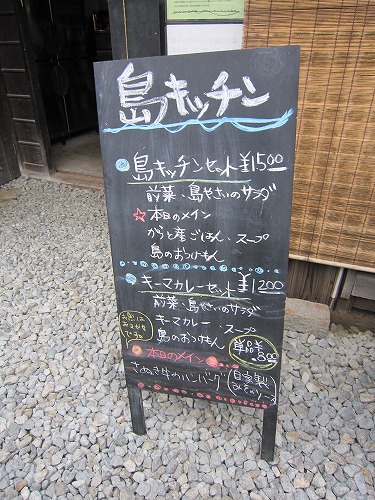 島キッチン
島キッチンセット ¥1500
前菜・島やさいのサラダ
☆本日のメイン
からと産ごはん、スープ
島のおつけもん
キーマカレーセット ¥1200
前菜・島やさいのサラダ
キーマカレー スープ
島のおつけもん
単品¥800
本日のメイン
さぬき牛のハンバーグ